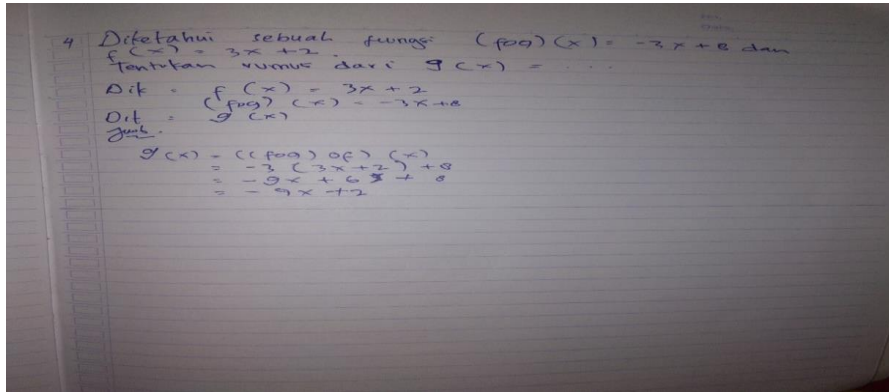 4 Diketahui sebuah fungsi (fog)(x) = -3x + 8 dan
f(x) = 3x + 2.
Tentukan rumus dari g(x) = ....
Dik = f(x) = 3x + 2
(fog)(x) = -3x + 8
Dit = g(x)
Jwb.
g(x) = ((fog) of)(x)
= -3(3x+2) + 8
= -9x + 6 + 8
= -9x + 2